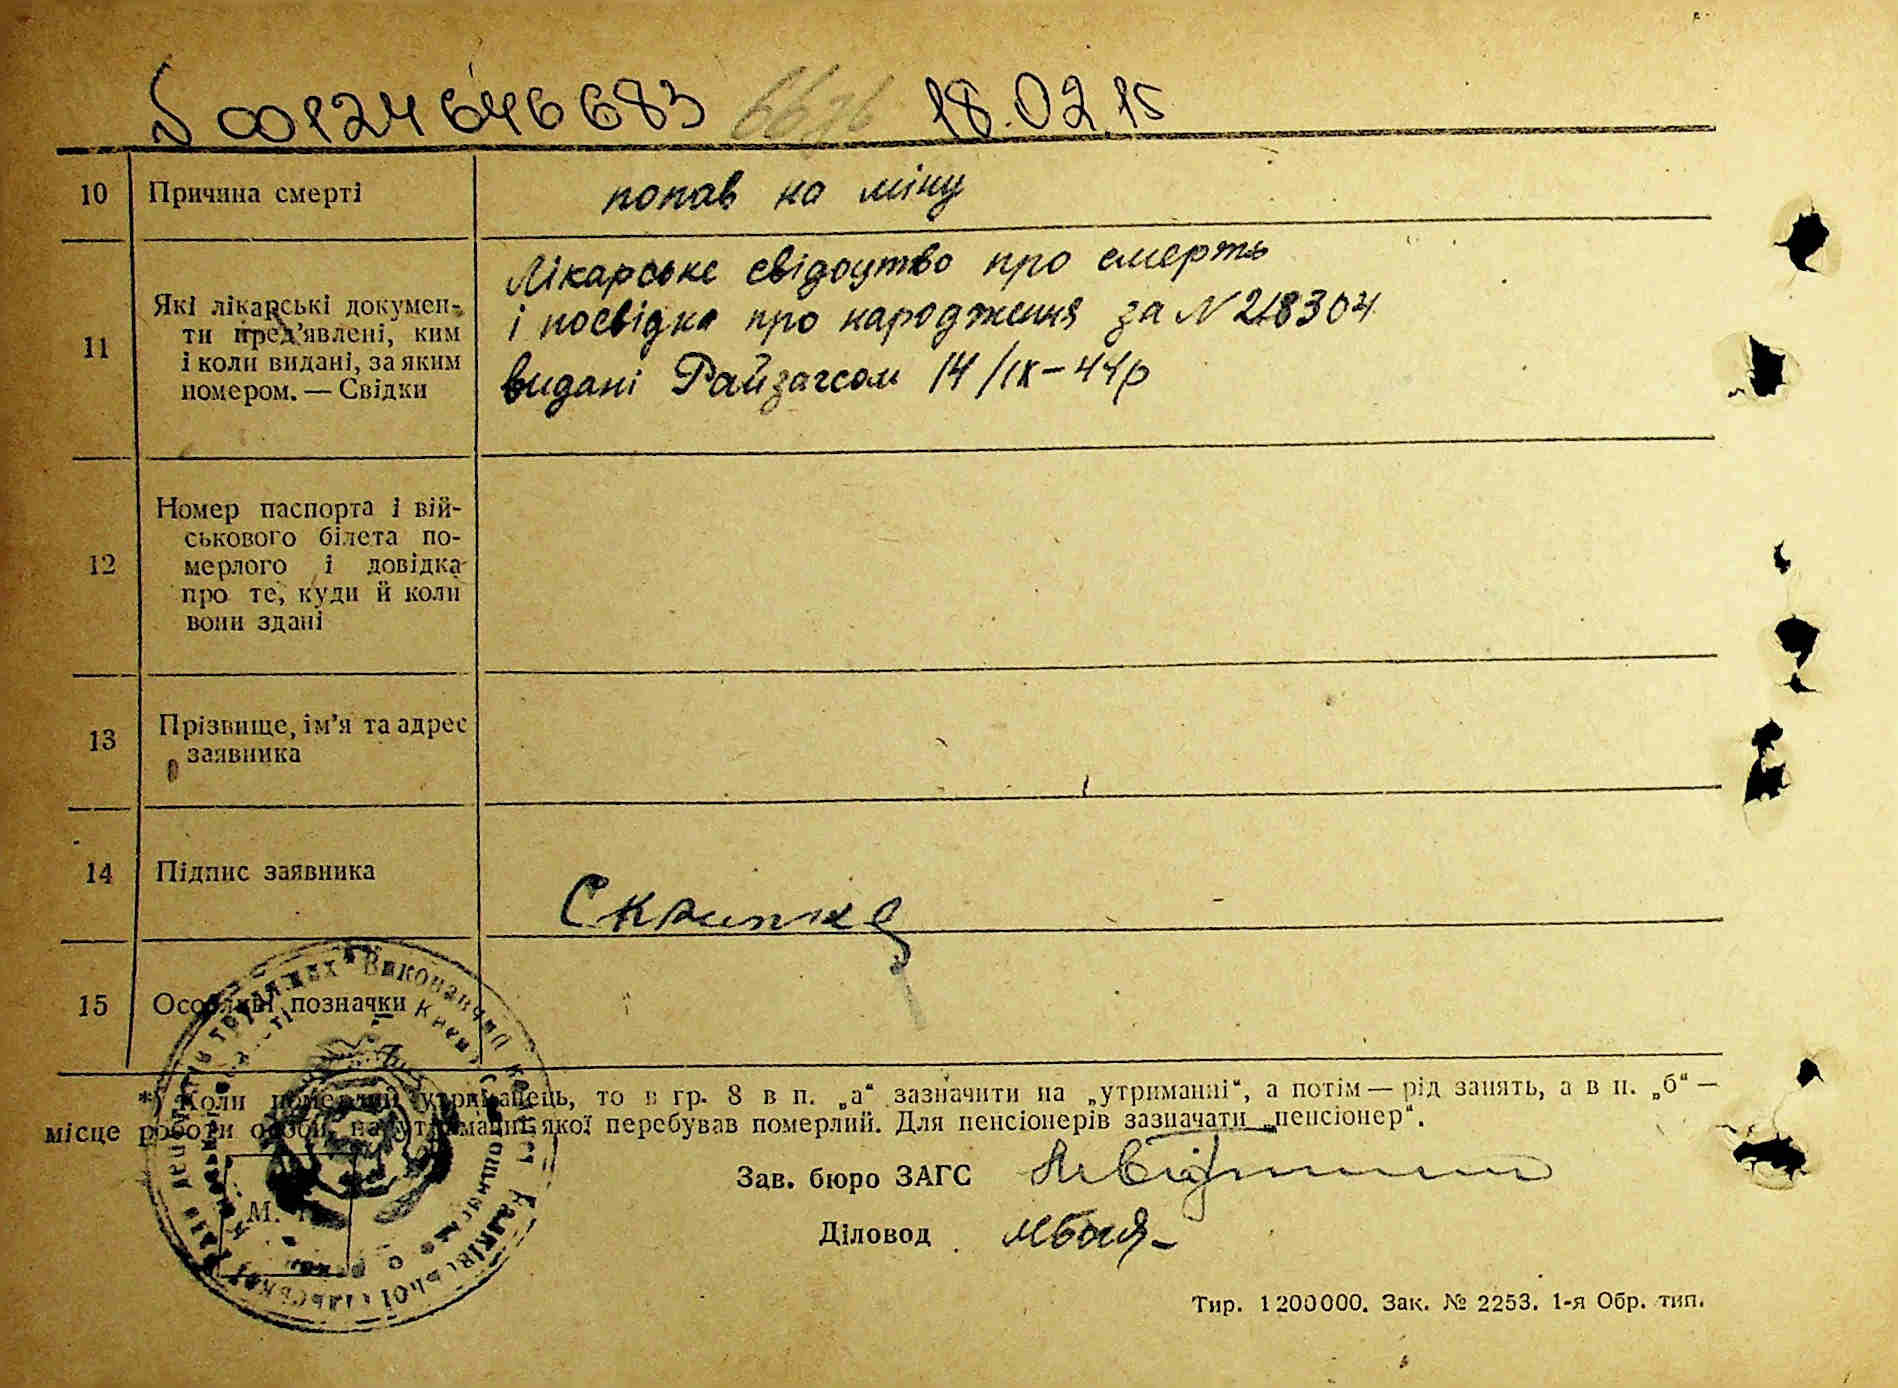 N 00124646683 18.02.15
10 Причина смерті попав на міну
11 Які лікарські документи пред'явлені, ким і коли видані, за яким номером. — Свідки
Лікарське свідоцтво про смерть
і посвідка про народження за N 218304
видані Райзагсом 14/IX-44р
12 Номер паспорта і вій-
ськового білета по-
мерлого і довідка
про те, куди й коли
вони здані
13 Прізвище, ім'я та адрес
заявника
14 Підпис заявника
15 Особливі позначки
*) Коли померлий утриманець, то в гр. 8 в п. „а“ зазначити на „утриманні“, а потім — рід занять, а в п. „б“ —
місце роботи особи, на утриманні якої перебував померлий. Для пенсіонерів зазначати „пенсіонер“.
Зав. бюро ЗАГС
Діловод
М.
Тир. 1200000. Зак. № 2253. 1-я Обр. тип.